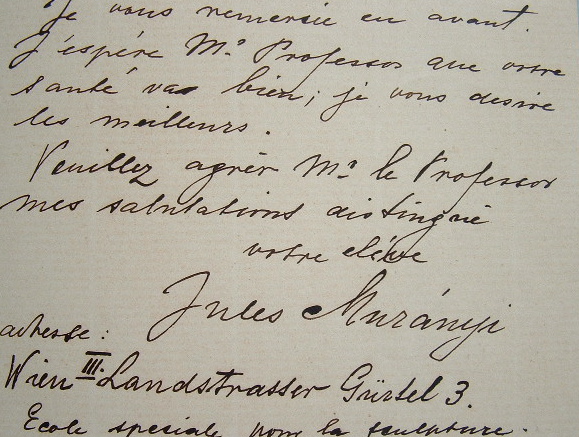 Je vous remersie en avant.
J'espére Mr. Professor que votre
santé vas bien; je vous desire
les meilleurs.
Veuillez agrér Mr. le Professor
mes salutations distingué
votre eléve
Jules Murányi
adresse:
Wien III. Landstrasser Gürtel 3.
Ecole speciale pour la sculpture.